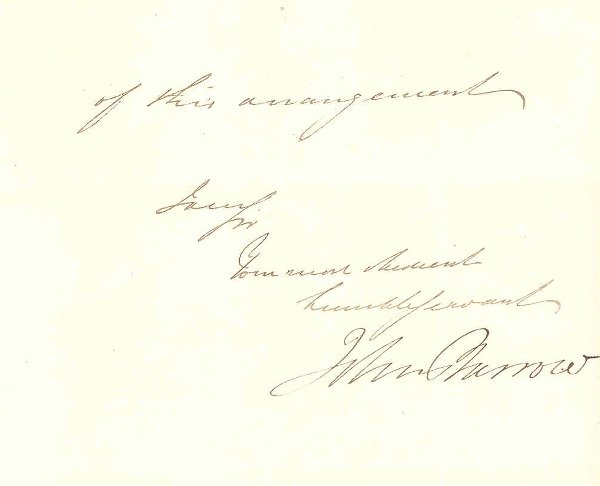 of this arrangement
I am
Sir
Your most obedient
humble servant
John Barrow